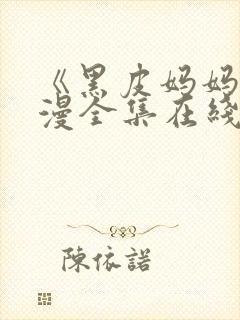 《黑皮妈妈
漫全集在綫
陳依諾